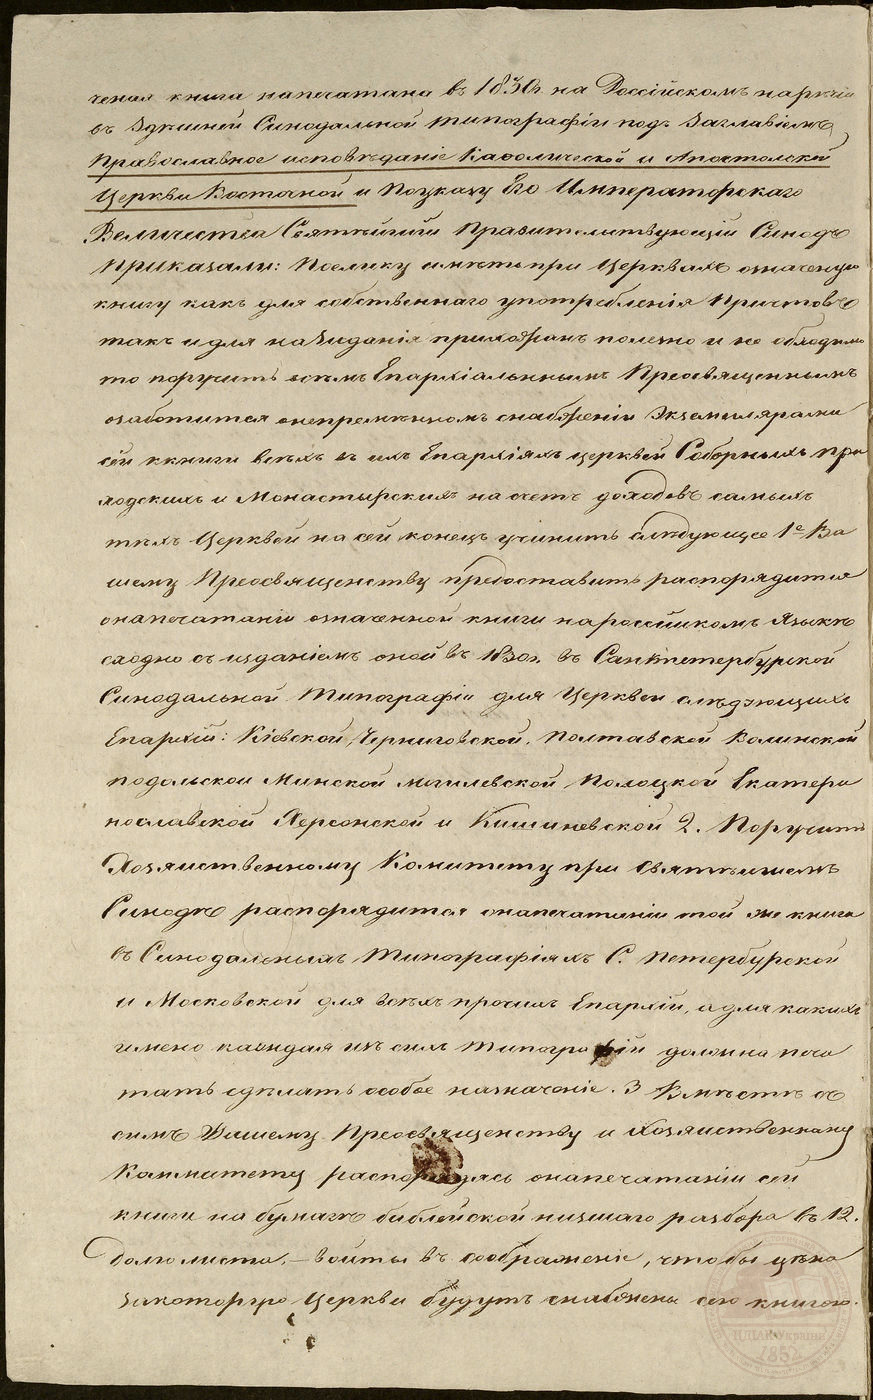 ченая книга напечатана въ 1830г. на Россійскомъ наречіи
въ здешней Синодальной типографіи подъ заглавіемъ
Православное исповѣданіе Каѳолической и Апостольской
Церкви Восточной и по указу Его Императорскаго
Величества Святѣйшій Правительствующій Синодъ
Приказали: Поелику имѣть при Церквахъ означенную
книгу какъ для собственнаго употребленія Причтовъ
такъ и для назиданія прихожанъ полезно и необходимо
то поручить всѣмъ Епархіальнымъ Преосвященнымъ
озаботится о непремѣнномъ снабженіи экземплярами
сей книги всѣхъ въ ихъ Епархіяхъ церквей Соборныхъ при
ходскихъ и Монастырскихъ на счетъ доходовъ самыхъ
тѣхъ Церквей на сей конецъ учинить слѣдующее 1е Ва
шему Преосвященству предоставить распорядится
о напечатаніи означенной книги на россійскомъ языкѣ
сходно съ изданіемъ оной въ 1830г. въ Санктпетербургской
Синодальной Типографіи для Церквей слѣдующихъ
Епархій: Кіевской, Черниговской, Полтавской Волинской
подольской Минской могилевской Полоцкой Екатери
нославской Херсонской и Кишиневской 2. Поручить
Хозяйственному Комитету при Святѣйшемъ
Синодѣ распорядится о напечатаніи той же книги
въ Синодальныхъ Типографіяхъ С. Петербурской
и Московской для всѣхъ прочихъ Епархій, а для какихъ
имено каждая изъ сихъ типографій должна печа
тать сдѣлать особое назначеніе. 3 Вмѣстѣ съ
симъ Вашему Преосвященству и Хозяйственному
Коммитету распорядясь о напечатаніи сей
книги на бумагѣ библейской низшаго разбора въ 12.
долю листа, — войти въ соображеніе, чтобы цѣна
за которую Церкви будутъ снабжены сею книгою.
ЦДІАК України
1852